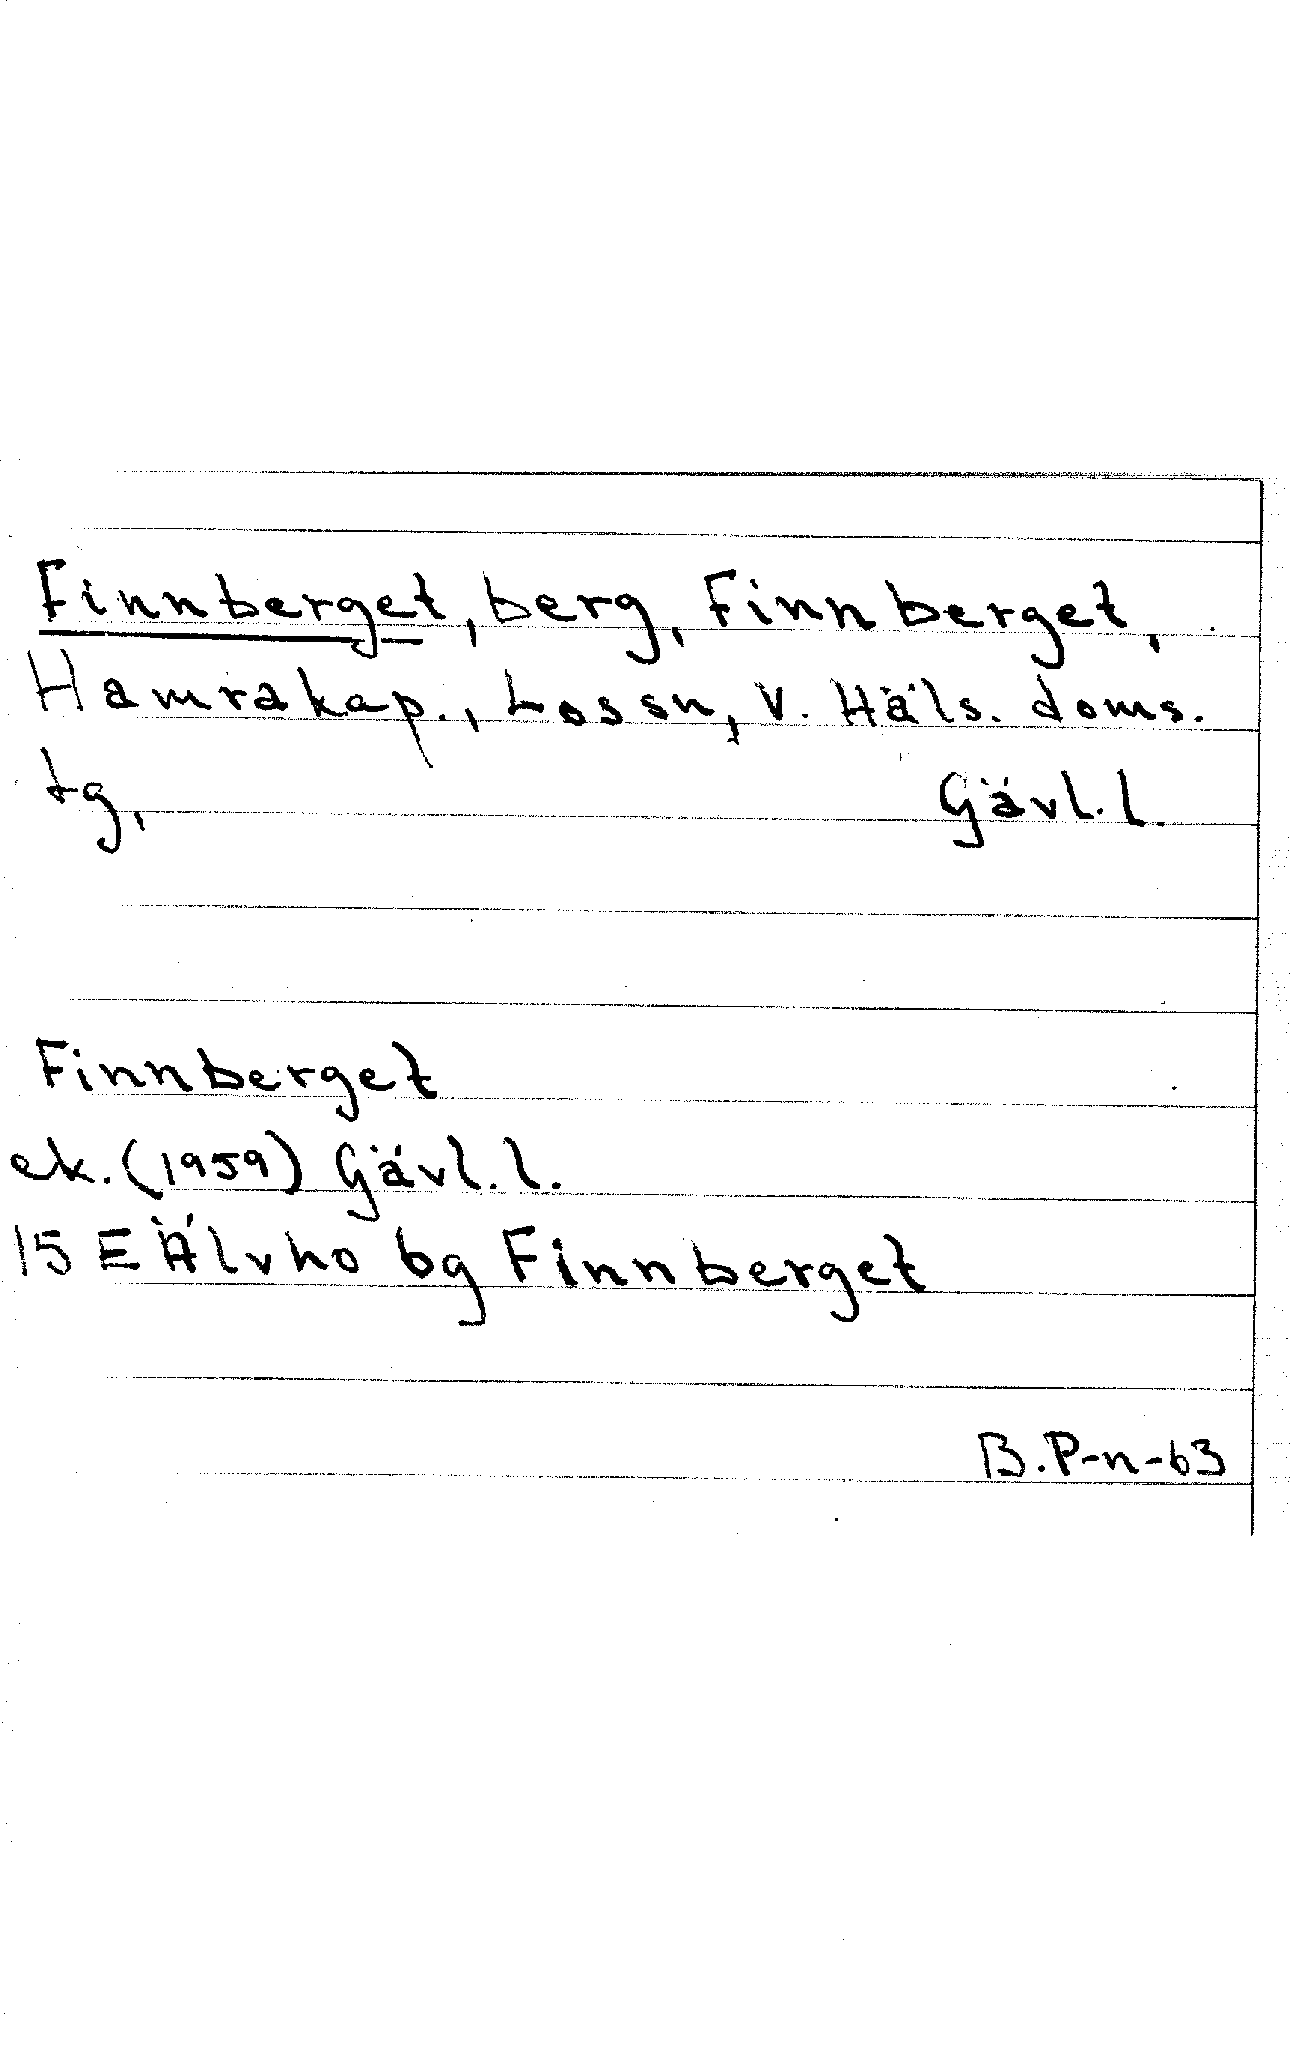 Finnberget, berg, Finnberget,
Hamrakap., Lossn, V. Häls. doms.
tg, Gävl. l.
Finnberget
ek. (1959) Gävl. l.
15 E Älvho bg Finnberget
B. P-n-63